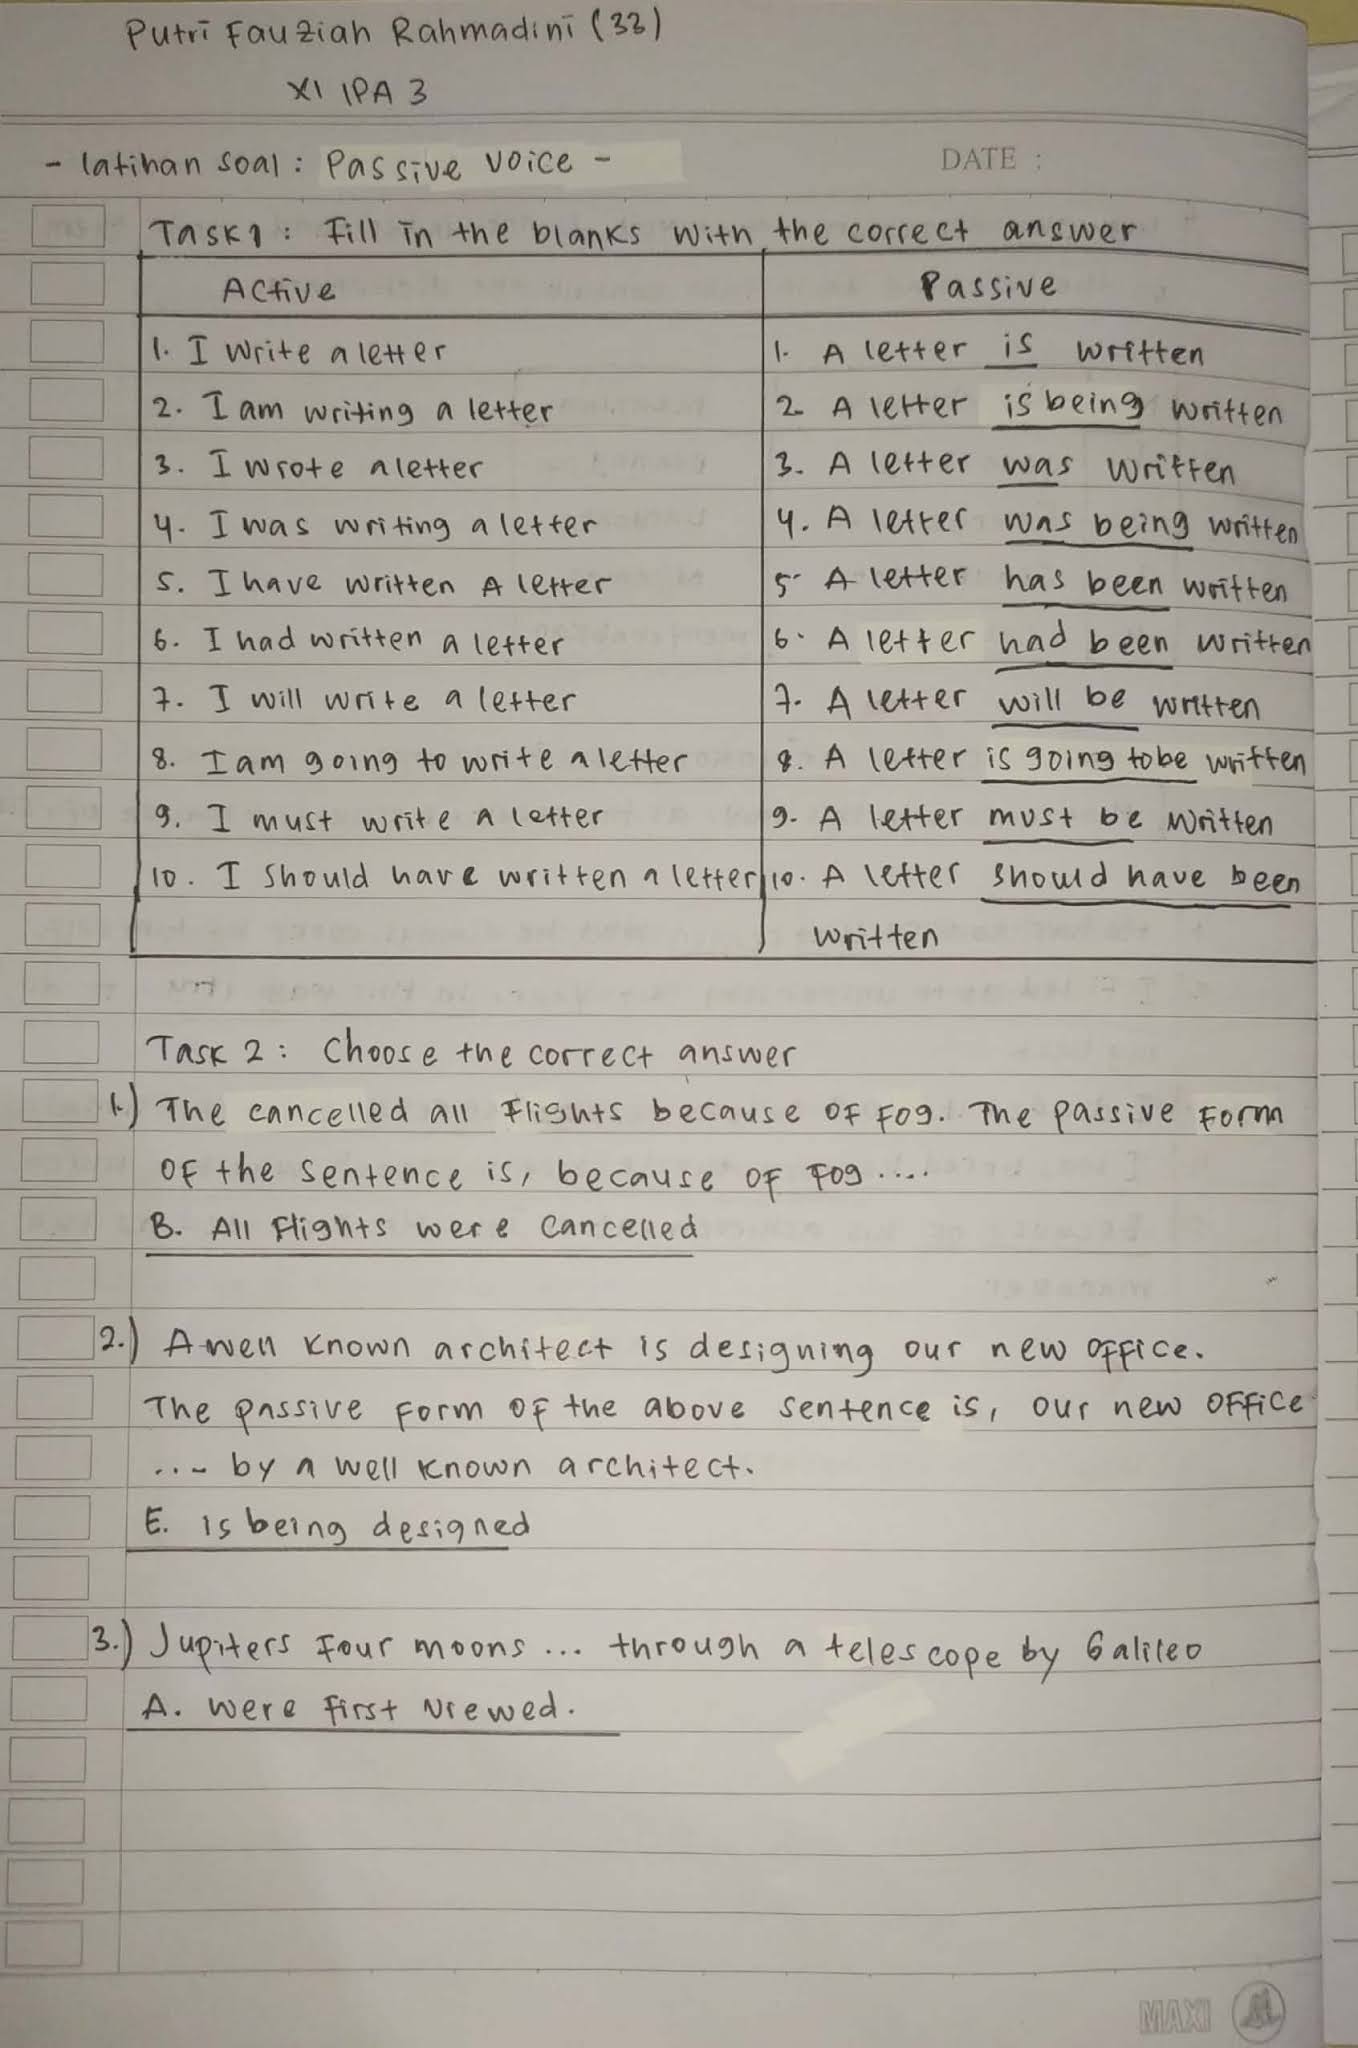 Putri Fauziah Rahmadini (33)
XI IPA 3
- latihan soal : Passive Voice -
DATE :
Task 1 : Fill in the blanks with the correct answer
Active
Passive
1. I write a letter
1. A letter is written
2. I am writing a letter
2 A letter is being written
3. I wrote a letter
3. A letter was written
4. I was writing a letter
4. A letter was being written
5. I have written A letter
5. A letter has been written
6. I had written a letter
6. A letter had been written
7. I will write a letter
7. A letter will be written
8. I am going to write a letter
8. A letter is going to be written
9. I must write a letter
9. A letter must be written
10. I should have written a letter
10. A letter should have been
written
Task 2 : Choose the correct answer
1.) The cancelled all flights because of fog. The passive form
of the sentence is, because of fog ....
B. All flights were cancelled
2.) A well known architect is designing our new office.
The passive form of the above sentence is, our new office
... by a well known architect.
E. is being designed
3.) Jupiters four moons ... through a telescope by Galileo
A. were first viewed.
MAXI